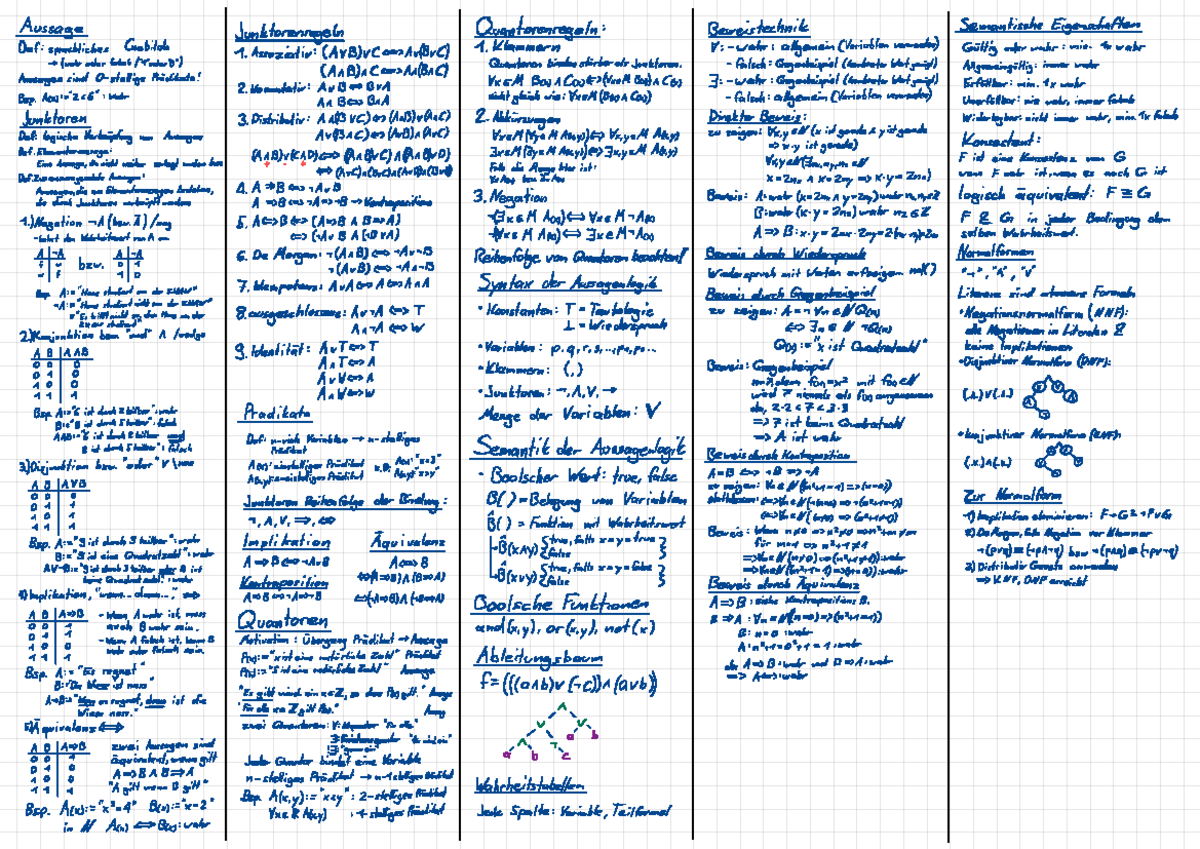 Aussage
Def: sprachliches Gebilde
→ (wahr oder falsch ("1" oder "0")
Aussagen sind 0-stellige Prädikate!
Bsp. A(x):="2<6": wahr
Junktoren
Def: logische Verknüpfung von Aussagen
Def. Elementaraussage:
Eine Aussage, die nicht weiter zerlegt werden kann
Def. Zusammengesetzte Aussagen:
Aussagen, die aus Elementaraussagen bestehen,
die durch Junktoren verknüpft werden
1.) Negation ¬A (bzw. Ā) /neg
- kehrt den Wahrheitswert von A um
A | ¬A bzw. A | ¬A
w | f 0 | 1
f | w 1 | 0
2.) Konjunktion bzw. "und" ∧ /wedge
A B | A∧B
0 0 | 0
0 1 | 0
1 0 | 0
1 1 | 1
Bsp A:="6 ist durch 2 teilbar": wahr
B:="6 ist durch 5 teilbar": falsch
A∧B:="6 ist durch 2 teilbar und
6 ist durch 5 teilbar": falsch
3.) Disjunktion bzw. "oder" ∨ \vee
A B | A∨B
0 0 | 0
0 1 | 1
1 0 | 1
1 1 | 1
Bsp. A:="9 ist durch 3 teilbar": wahr
B:="9 ist eine Quadratzahl": wahr
A∨B:="9 ist durch 3 teilbar oder 9 ist
keine Quadratzahl": wahr
4) Implikation, "wenn... dann..." ⇒
A B | A⇒B - Wenn A wahr ist, muss
0 0 | 1 auch B wahr sein.
0 1 | 1 - Wenn A falsch ist, kann B
1 0 | 0 wahr oder falsch sein.
1 1 | 1
Bsp. A:="Es regnet"
B:="Die Wiese ist nass"
A⇒B:="Wenn es regnet, dann ist die
Wiese nass."
5) Äquivalenz ⟺
A B | A⟺B zwei Aussagen sind
0 0 | 1 äquivalent, wenn gilt
0 1 | 0 A⇒B ∧ B⇒A
1 0 | 0 "A gilt wenn B gilt"
1 1 | 1
Bsp. A(x):="x²=4" B(x):="x=2"
in ℕ A(x) ⟺ B(x): wahr
Junktorenregeln
1. Assoziativ: (A∨B)∨C ⟺ A∨(B∨C)
(A∧B)∧C ⟺ A∧(B∧C)
2. Kommutativ: A∨B ⟺ B∨A
A∧B ⟺ B∧A
3. Distributiv: A∧(B∨C) ⟺ (A∧B)∨(A∧C)
A∨(B∧C) ⟺ (A∨B)∧(A∨C)
(A∧B)∨(C∧D) ⟺ (A∧B∨C)∧(A∧B∨D)
⟺ (A∨C)∧(B∨C)∧(A∨D)∧(B∨D)
4. A⇒B ⟺ ¬A∨B
A⇒B ⟺ ¬B⇒¬A → Kontraposition
5. A⟺B ⟺ (A⇒B ∧ B⇒A)
⟺ (¬A∨B ∧ ¬B∨A)
6. De Morgan: ¬(A∧B) ⟺ ¬A∨¬B
¬(A∨B) ⟺ ¬A∧¬B
7. Idempotenz: A∨A ⟺ A∧A ⟺ A
8. ausgeschlossenes: A∨¬A ⟺ T
A∧¬A ⟺ W
9. Identität: A∨T ⟺ T
A∧T ⟺ A
A∨W ⟺ A
A∧W ⟺ W
Prädikate
Def: n-viele Variablen → n-stelliges
Prädikat
A(x): einstelliges Prädikat z.B. A(x): "x=3"
A(x,y): zweistelliges Prädikat A(x,y): "x>y"
Junktoren Reihenfolge der Bindung:
¬, ∧, ∨, ⇒, ⟺
Implikation Äquivalenz
A⇒B ⟺ ¬A∨B A⟺B
Kontraposition ⟺(A⇒B)∧(B⇒A)
A⇒B ⟺ ¬B⇒¬A
Quantoren
Motivation: Übergang Prädikat → Aussage
P(x):="x ist eine natürliche Zahl" Prädikat
P(5):="5 ist eine natürliche Zahl" Aussage
"Es gibt mind. ein x∈ℤ, so dass P(x) gilt." Aussage
"Für alle x∈ℤ gilt P(x)." Aussage
zwei Quantoren: ∀: Allquantor "für alle"
Jeder Quantor bindet eine Variable
n-stelliges Prädikat → n-1 stelliges Prädikat
Bsp. A(x,y):="x<y": 2-stelliges Prädikat
∀x∈ℝ A(x,y) : 1-stelliges Prädikat
Quantorenregeln:
1. Klammern
Quantoren binden stärker als Junktoren.
∀x∈M B(x) ∧ C(x) ⟺ (∀x∈M B(x)) ∧ C(x)
nicht gleich wie: ∀x∈M (B(x) ∧ C(x))
2. Abkürzungen
∀x∈M(∀y∈M A(x,y)) ⟺ ∀x,y∈M A(x,y)
∃x∈M(∃y∈M A(x,y)) ⟺ ∃x,y∈M A(x,y)
Falls die Menge klar ist:
∀x A(x) bzw. ∃x A(x)
3. Negation
¬(∃x∈M A(x)) ⟺ ∀x∈M ¬A(x)
¬(∀x∈M A(x)) ⟺ ∃x∈M ¬A(x)
Reihenfolge von Quantoren beachten!
Syntax der Aussagenlogik
· Konstanten: T = Tautologie
⊥ = Wiederspruch
· Variablen: p, q, r, s, ..., p₁, p₂, ...
· Klammern: (,)
· Junktoren: ¬, ∧, ∨, →
Menge der Variablen: V
Semantik der Aussagenlogik
· Boolscher Wert: true, false
B( ) = Belegung von Variablen
B̂( ) = Funktion mit Wahrheitswert
B̂(x∧y) {true, falls x=y=true
false}
B̂(x∨y) {true, falls x=y=false
false}
Boolsche Funktionen
and(x,y), or(x,y), not(x)
Ableitungsbaum
f=(((a∧b)∨(¬c))∧(a∨b))
∧
∨ ∨
∧ ¬ a b
a b c
Wahrheitstabellen
Jede Spalte: Variable, Teilformel
Beweistechnik
∀: - wahr: allgemein (Variablen verwenden)
- falsch: Gegenbeispiel (konkreter Wert zeigt)
∃: - wahr: Gegenbeispiel (konkreter Wert zeigt)
- falsch: allgemein (Variablen verwenden)
Direkter Beweis:
zu zeigen: ∀x,y∈ℕ (x ist gerade ∧ y ist gerade
⇒ x·y ist gerade)
Beweis durch Wiederspruch
Wiederspruch mit Werten aufzeigen
Beweis durch Gegenbeispiel
zu zeigen: A = ¬∀n∈ℕ Q(n)
⟺ ∃n∈ℕ ¬Q(n)
Q(x):="x ist Quadratzahl"
Beweis: Gegenbeispiel
mit dem f(n)=x² mit f(n)∈ℕ
wird 7 niemals als f(n) angenommen
da, 2·2<7<3·3
⇒ 7 ist keine Quadratzahl
⇒ A ist wahr
Beweis durch Kontraposition
A⇒B ⟺ ¬B⇒¬A
Beweis durch Äquivalenz
A⇒B: siehe Kontraposition B.
B⇒A: ∀n∈ℕ(n=0)⇒(n²+1=1)
B: n=0: wahr
A: n²+1=0²+1=1: wahr
da A⇒B: wahr und B⇒A: wahr
⇒ A⟺B: wahr
Semantische Eigenschaften
Gültig oder wahr: min. 1x wahr
Allgemeingültig: immer wahr
Erfüllbar: min. 1x wahr
Unerfüllbar: nie wahr, immer falsch
Widerlegbar: nicht immer wahr, min. 1x falsch
Konsequent:
F ist eine Konsequenz von G
wenn F wahr ist, wenn es auch G ist
logisch äquivalent: F ≡ G
F & G in jeder Bedingung den
selben Wahrheitswert.
Normalformen
"¬", "∧", "∨"
Literale sind atomare Formeln
· Negationsnormalform (NNF):
alle Negationen in Literalen &
keine Implikationen
· Disjunktive Normalform (DNF):
(.∧.)∨(.∧.)
· konjunktive Normalform (KNF):
(.∨.)∧(.∨.)
Zur Normalform
1) Implikation eliminieren: F→G ≡ ¬F∨G
2) De Morgan, falls Negation vor Klammer
¬(p∨q)≡(¬p∧¬q) bzw ¬(p∧q)≡(¬p∨¬q)
3) Distributiv Gesetz anwenden
⇒ KNF, DNF erreicht